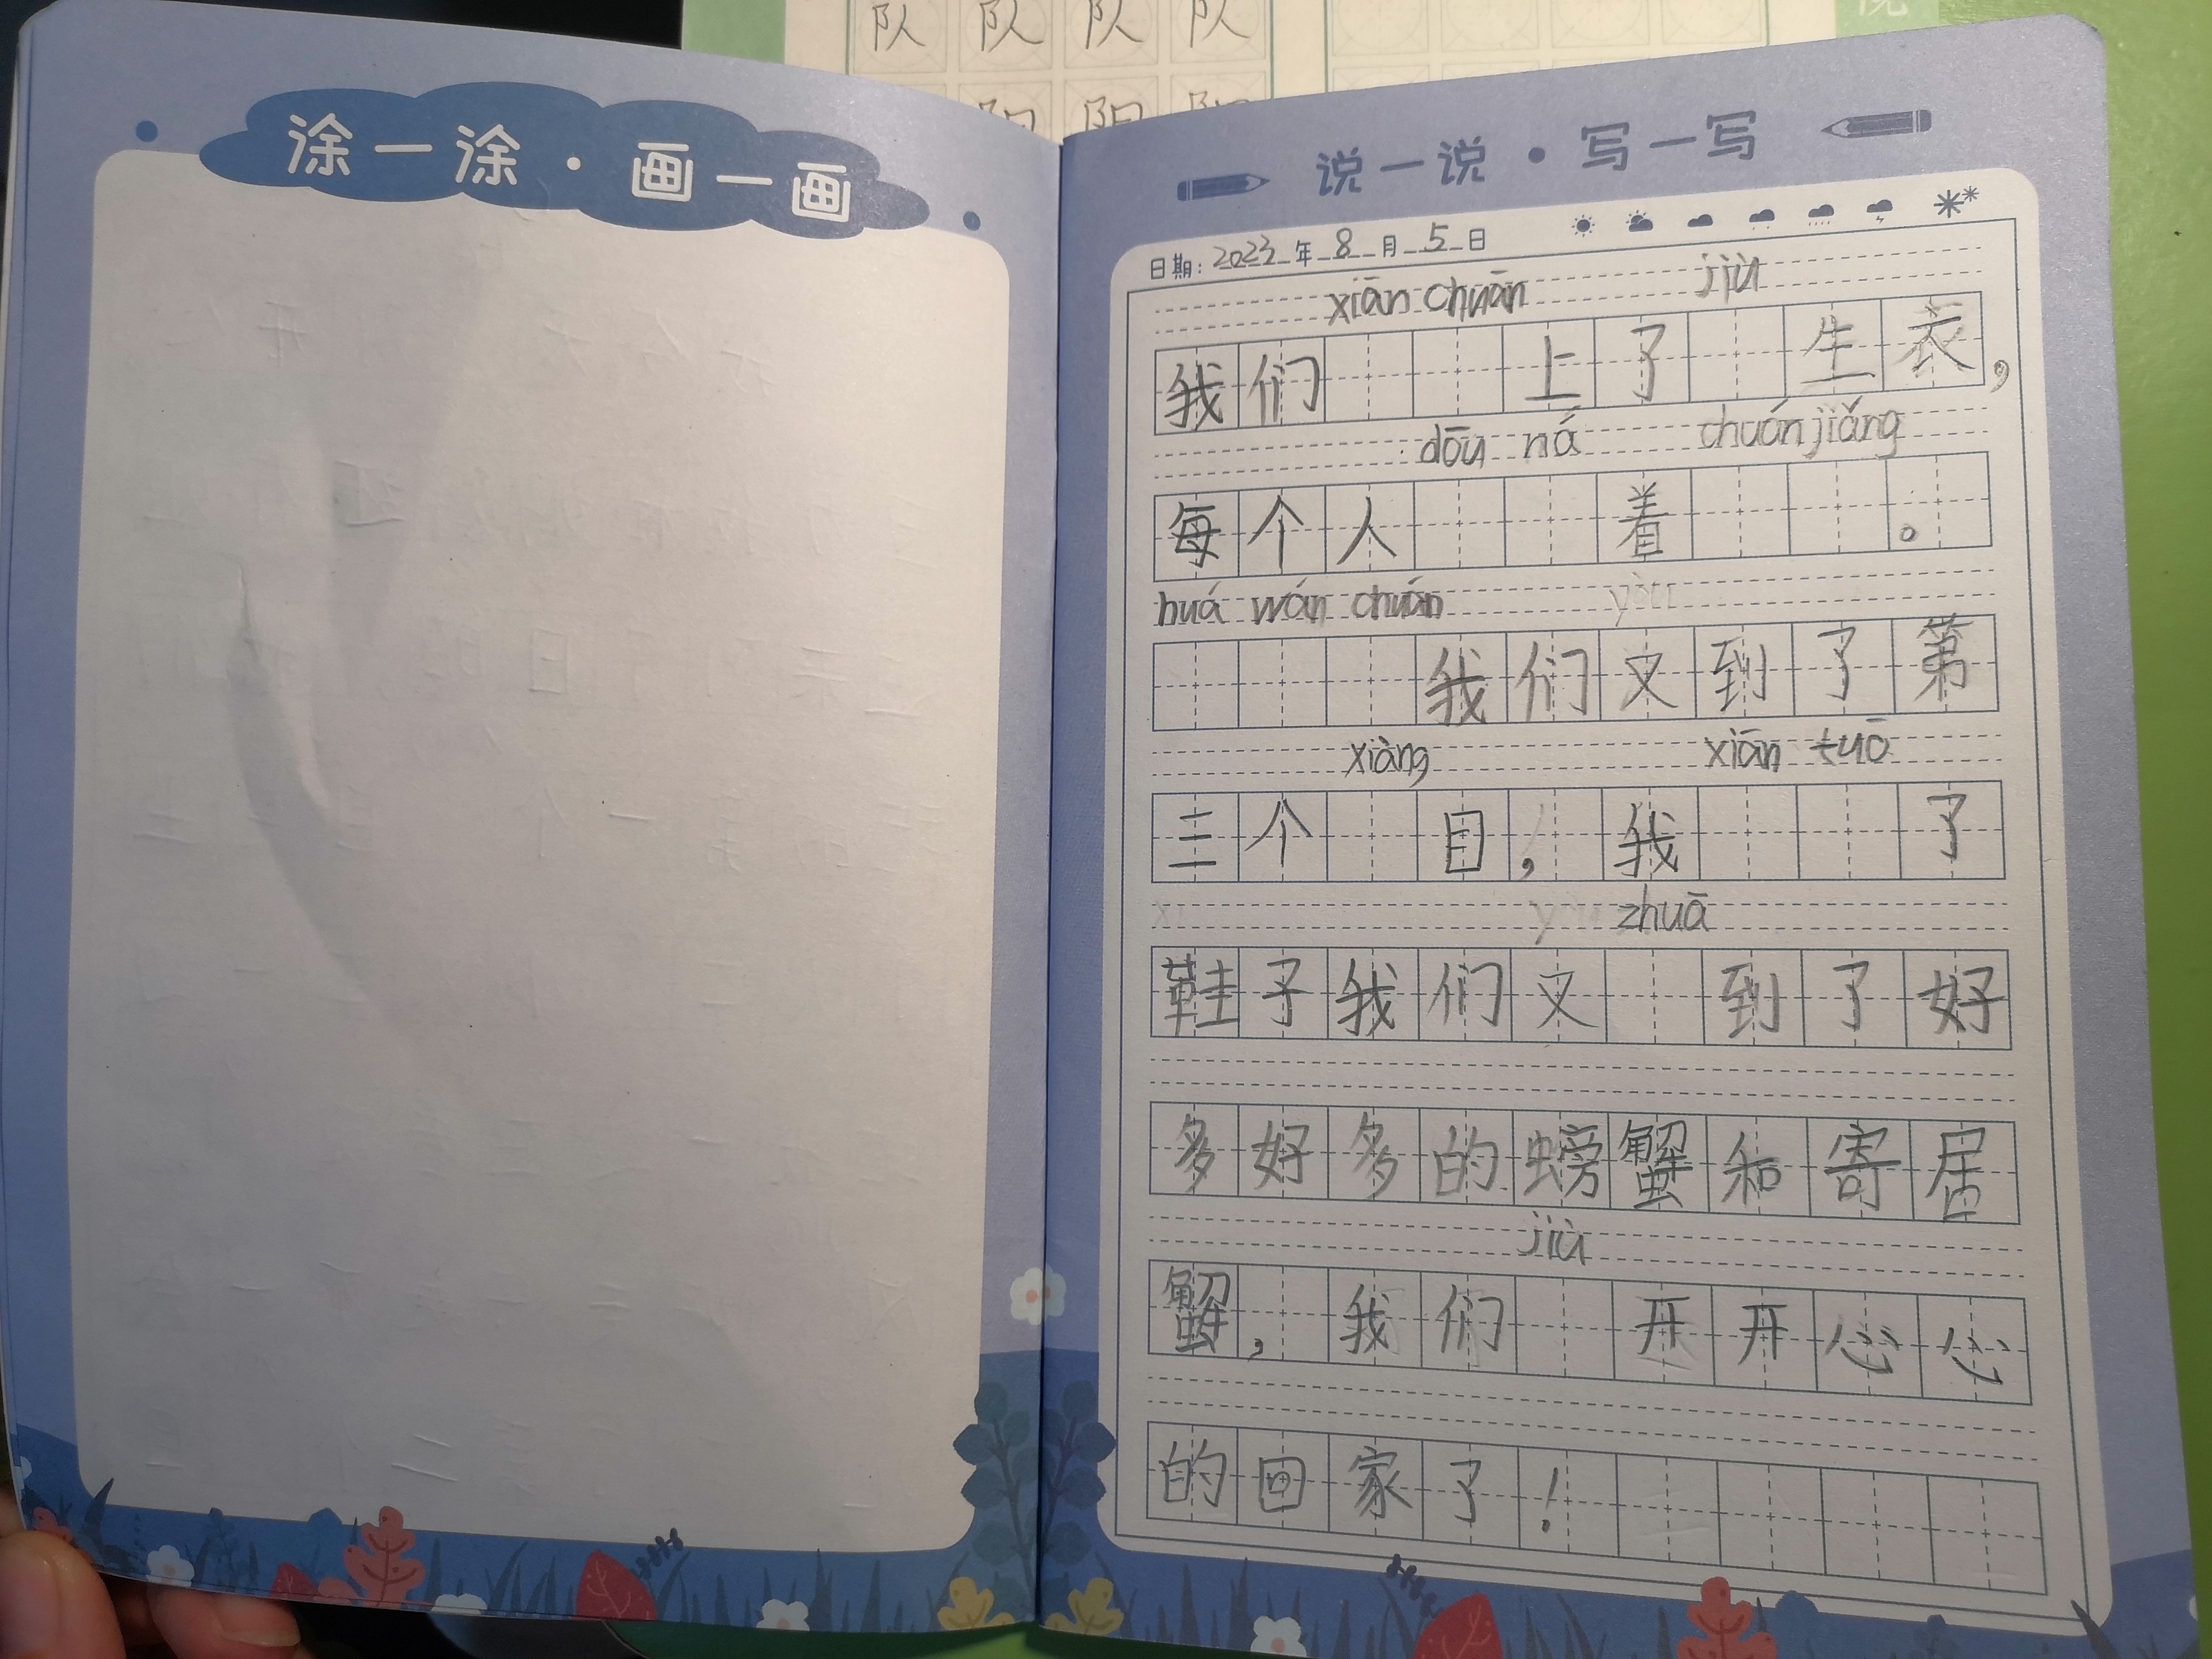 队 队 队 队
阳 阳
涂一涂·画一画
说一说·写一写
日期: 2023 年 8 月 5 日
xiān chuān jiù
我们 上了 生衣,
dōu ná chuán jiǎng
每个人 着 。
huá wán chuán yòu
我们又到了第
xiàng xiān tuō
三个 目, 我 了
zhuā
鞋子我们又 到了好
多好多的螃蟹和寄居
jiù
蟹, 我们 开开心心
的回家了!